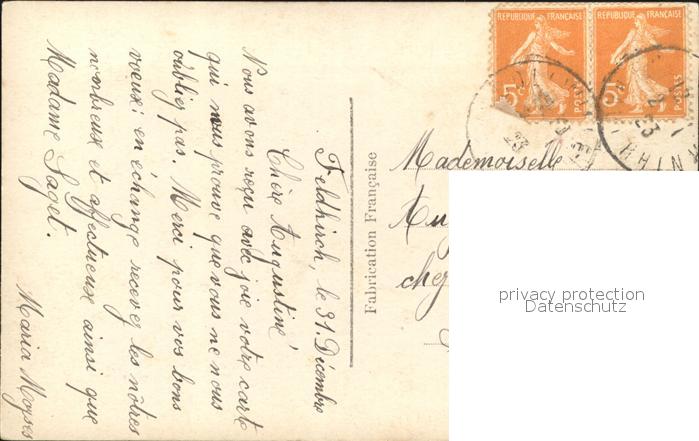 Feldkirch, le 31. Décembre
Chère Augustine!
Nous avons reçu avec joie votre carte
qui nous prouve que vous ne nous
oubliez pas. Merci pour vos bons
voeux; en échange recevez les nôtres
nombreux et affectueux ainsi que
Madame Saget.
Maria Moyses
Fabrication Française
REPUBLIQUE FRANÇAISE
5c
POSTES
REPUBLIQUE FRANÇAISE
5c
POSTES
Mademoiselle
Aug
chez
privacy protection
Datenschutz